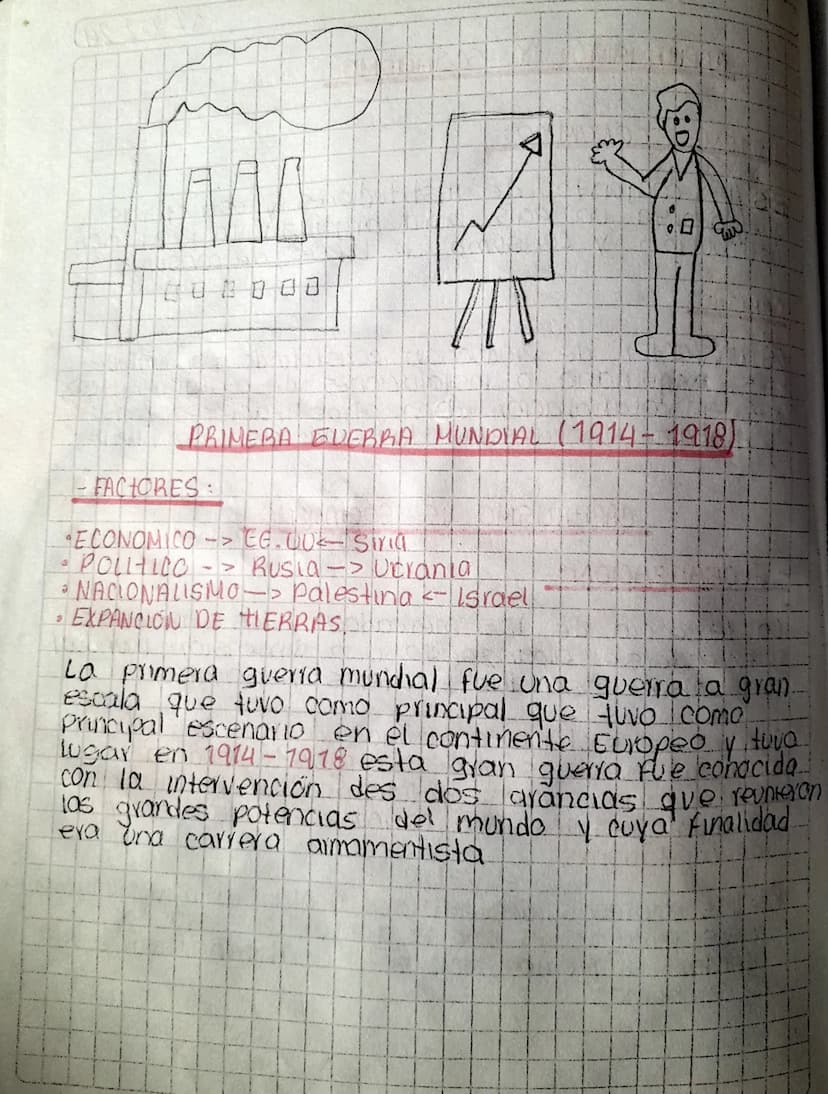 PRIMERA GUERRA MUNDIAL (1914-1918)
- FACTORES:
• ECONOMICO -> EE.UU <- Siria
• POLITICO -> Rusia -> Ucrania
• NACIONALISMO -> Palestina <- Israel
• EXPANCIÓN DE TIERRAS.
La primera guerra mundial fue una guerra a gran
escala que tuvo como principal que tuvo como
principal escenario en el continente Europeo y tuvo
lugar en 1914-1918 esta gran guerra fue conocida
con la intervención des dos arancias que reunieron
las grandes potencias del mundo y cuya finalidad
era una carrera armamentista